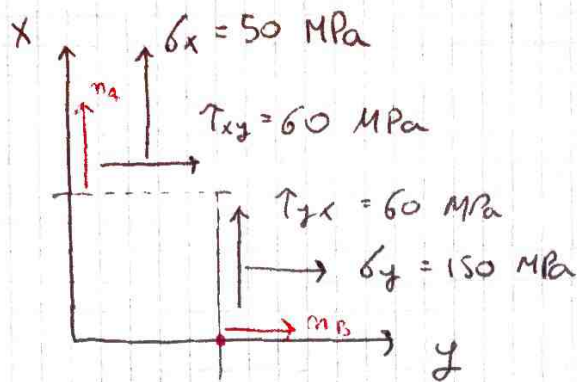 x
σx = 50 MPa
na
τxy = 60 MPa
τyx = 60 MPa
σy = 150 MPa
nB
y